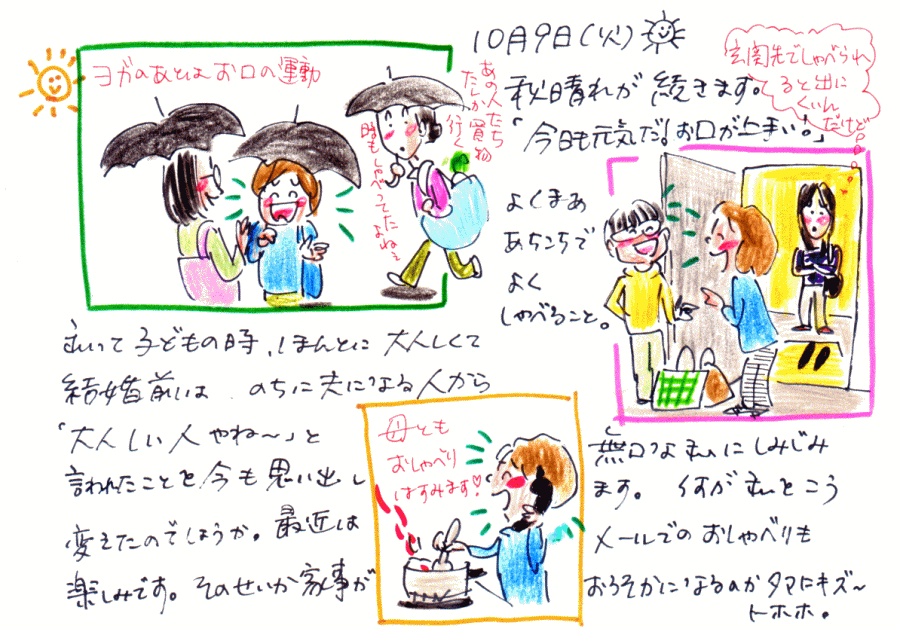 10月9日(火)
ヨガのあとは お口の運動
あの人たち
たしか買物
行く
時もしゃべってたよねぇ
玄関先でしゃべられ
ると出に
くいん
だけど
秋晴れが 続きます。
「今日も元気だ!お口がうまい!」
よくまあ
あちこちで
よく
しゃべること。
私って子どもの時、ほんとに大人しくて
結婚前は、のちに夫になる人から
「大人しい人やね〜」と 無口な私にしみじみ
言われたことを今も思い出し ます。何が私をこう
変えたのでしょうか。最近は メールでのおしゃべりも
楽しみです。そのせいか家事が おろそかになるのがタマにキズ〜
トホホ。
母とも
おしゃべり
はずみます♡